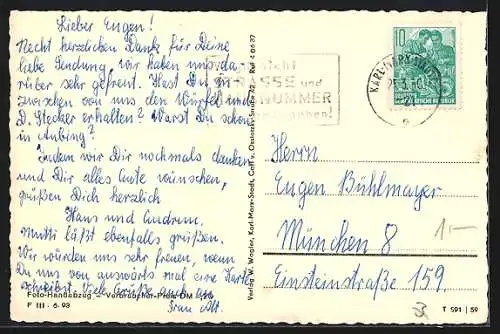 Lieber Eugen!
Recht herzlichen Dank für Deine
liebe Sendung, wir haben uns da-
rüber sehr gefreut. Hast Du in-
zwischen von uns den Würfel und
D. Stecker erhalten? Warst Du schon
in Aubing?
Indem wir Dir nochmals danken
und Dir alles Gute wünschen,
grüßen Dich herzlich
Hans und
Mutti läßt ebenfalls grüßen.
Wir würden uns sehr freuen, wenn
Du uns von auswärts mal eine Karte
schreibst. Viele Grüße auch von
Frau Alt.
Foto-Handabzug – Verbraucher-Preis DM
F III - 6 - 93
Verlag W. Wagler, Karl-Marx-Stadt, Carl-v.-Ossietzky-Straße 72, Ruf 4 06 37
nicht
STRASSE und
NUMMER
KARL-MARX-STADT
10
DEUTSCHE
DEMOKRATISCHE REPUBLIK
Herrn
Eugen Bühlmayer
München 8
Einsteinstraße 159
1.-
T 591 | 59